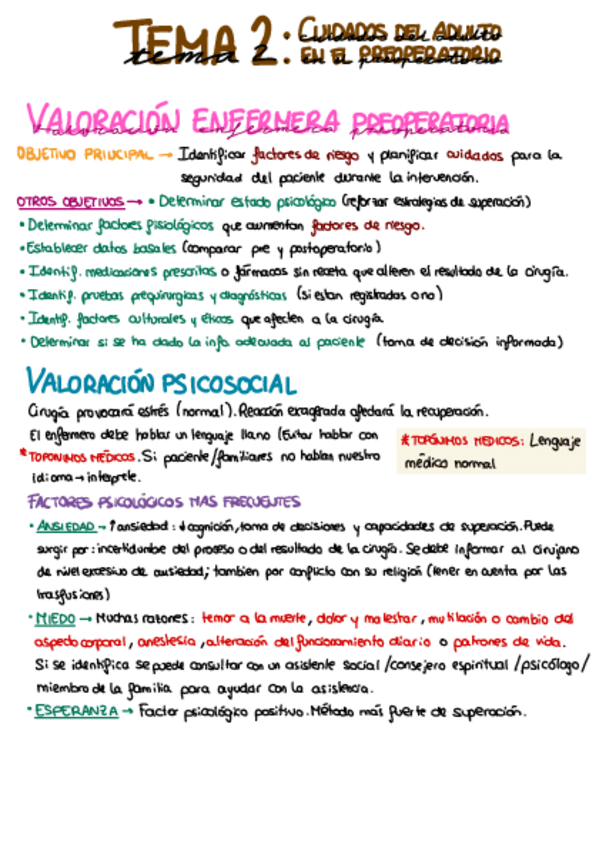 TEMA 2: CUIDADOS DEL ADULTO
EN EL PREOPERATORIO
tema 2 cuidados del adulto
en el preoperatorio
VALORACIÓN ENFERMERA PREOPERATORIA
valoración enfermera preoperatoria
OBJETIVO PRINCIPAL → Identificar factores de riesgo y planificar cuidados para la
seguridad del paciente durante la intervención.
OTROS OBJETIVOS → • Determinar estado psicológico (reforzar estrategias de superación)
• Determinar factores fisiológicos que aumentan factores de riesgo.
• Establecer datos basales (comparar pre y postoperatorio)
• Identif. medicaciones prescritas o fármacos sin receta que alteren el resultado de la cirugía.
• Identif. pruebas prequirurgicas y diagnósticas (si estan registradas o no)
• Identif. factores culturales y éticos que afecten a la cirugía
• Determinar si se ha dado la info adecuada al paciente (toma de decisión informada)
VALORACIÓN PSICOSOCIAL
Cirugía provocará estrés (normal). Reacción exagerada afectará la recuperación.
El enfermero debe hablar un lenguaje llano (Evitar hablar con
*TOPONIMOS MÉDICOS. Si paciente/familiares no hablan nuestro
idioma → interprete.
*TOPÓNIMOS MEDICOS: Lenguaje
médico normal
FACTORES PSICOLÓGICOS MAS FRECUENTES
• ANSIEDAD → ↑ansiedad: ↓cognición, toma de decisiones y capacidades de superación. Puede
surgir por: incertidumbe del proceso o del resultado de la cirugía. Se debe informar al cirujano
de nivel excesivo de ansiedad; tambien por conflicto con su religión (tener en cuenta por las
trasfusiones)
• MIEDO → Muchas razones: temor a la muerte, dolor y malestar, mutilación o cambio del
aspecto corporal, anestesia, alteración del funcionamiento diario o patrones de vida.
Si se identifica se puede consultar con un asistente social /consejero espiritual /psicólogo/
miembro de la familia para ayudar con la asistencia.
• ESPERANZA → Factor psicológico positivo. Método más fuerte de superación.